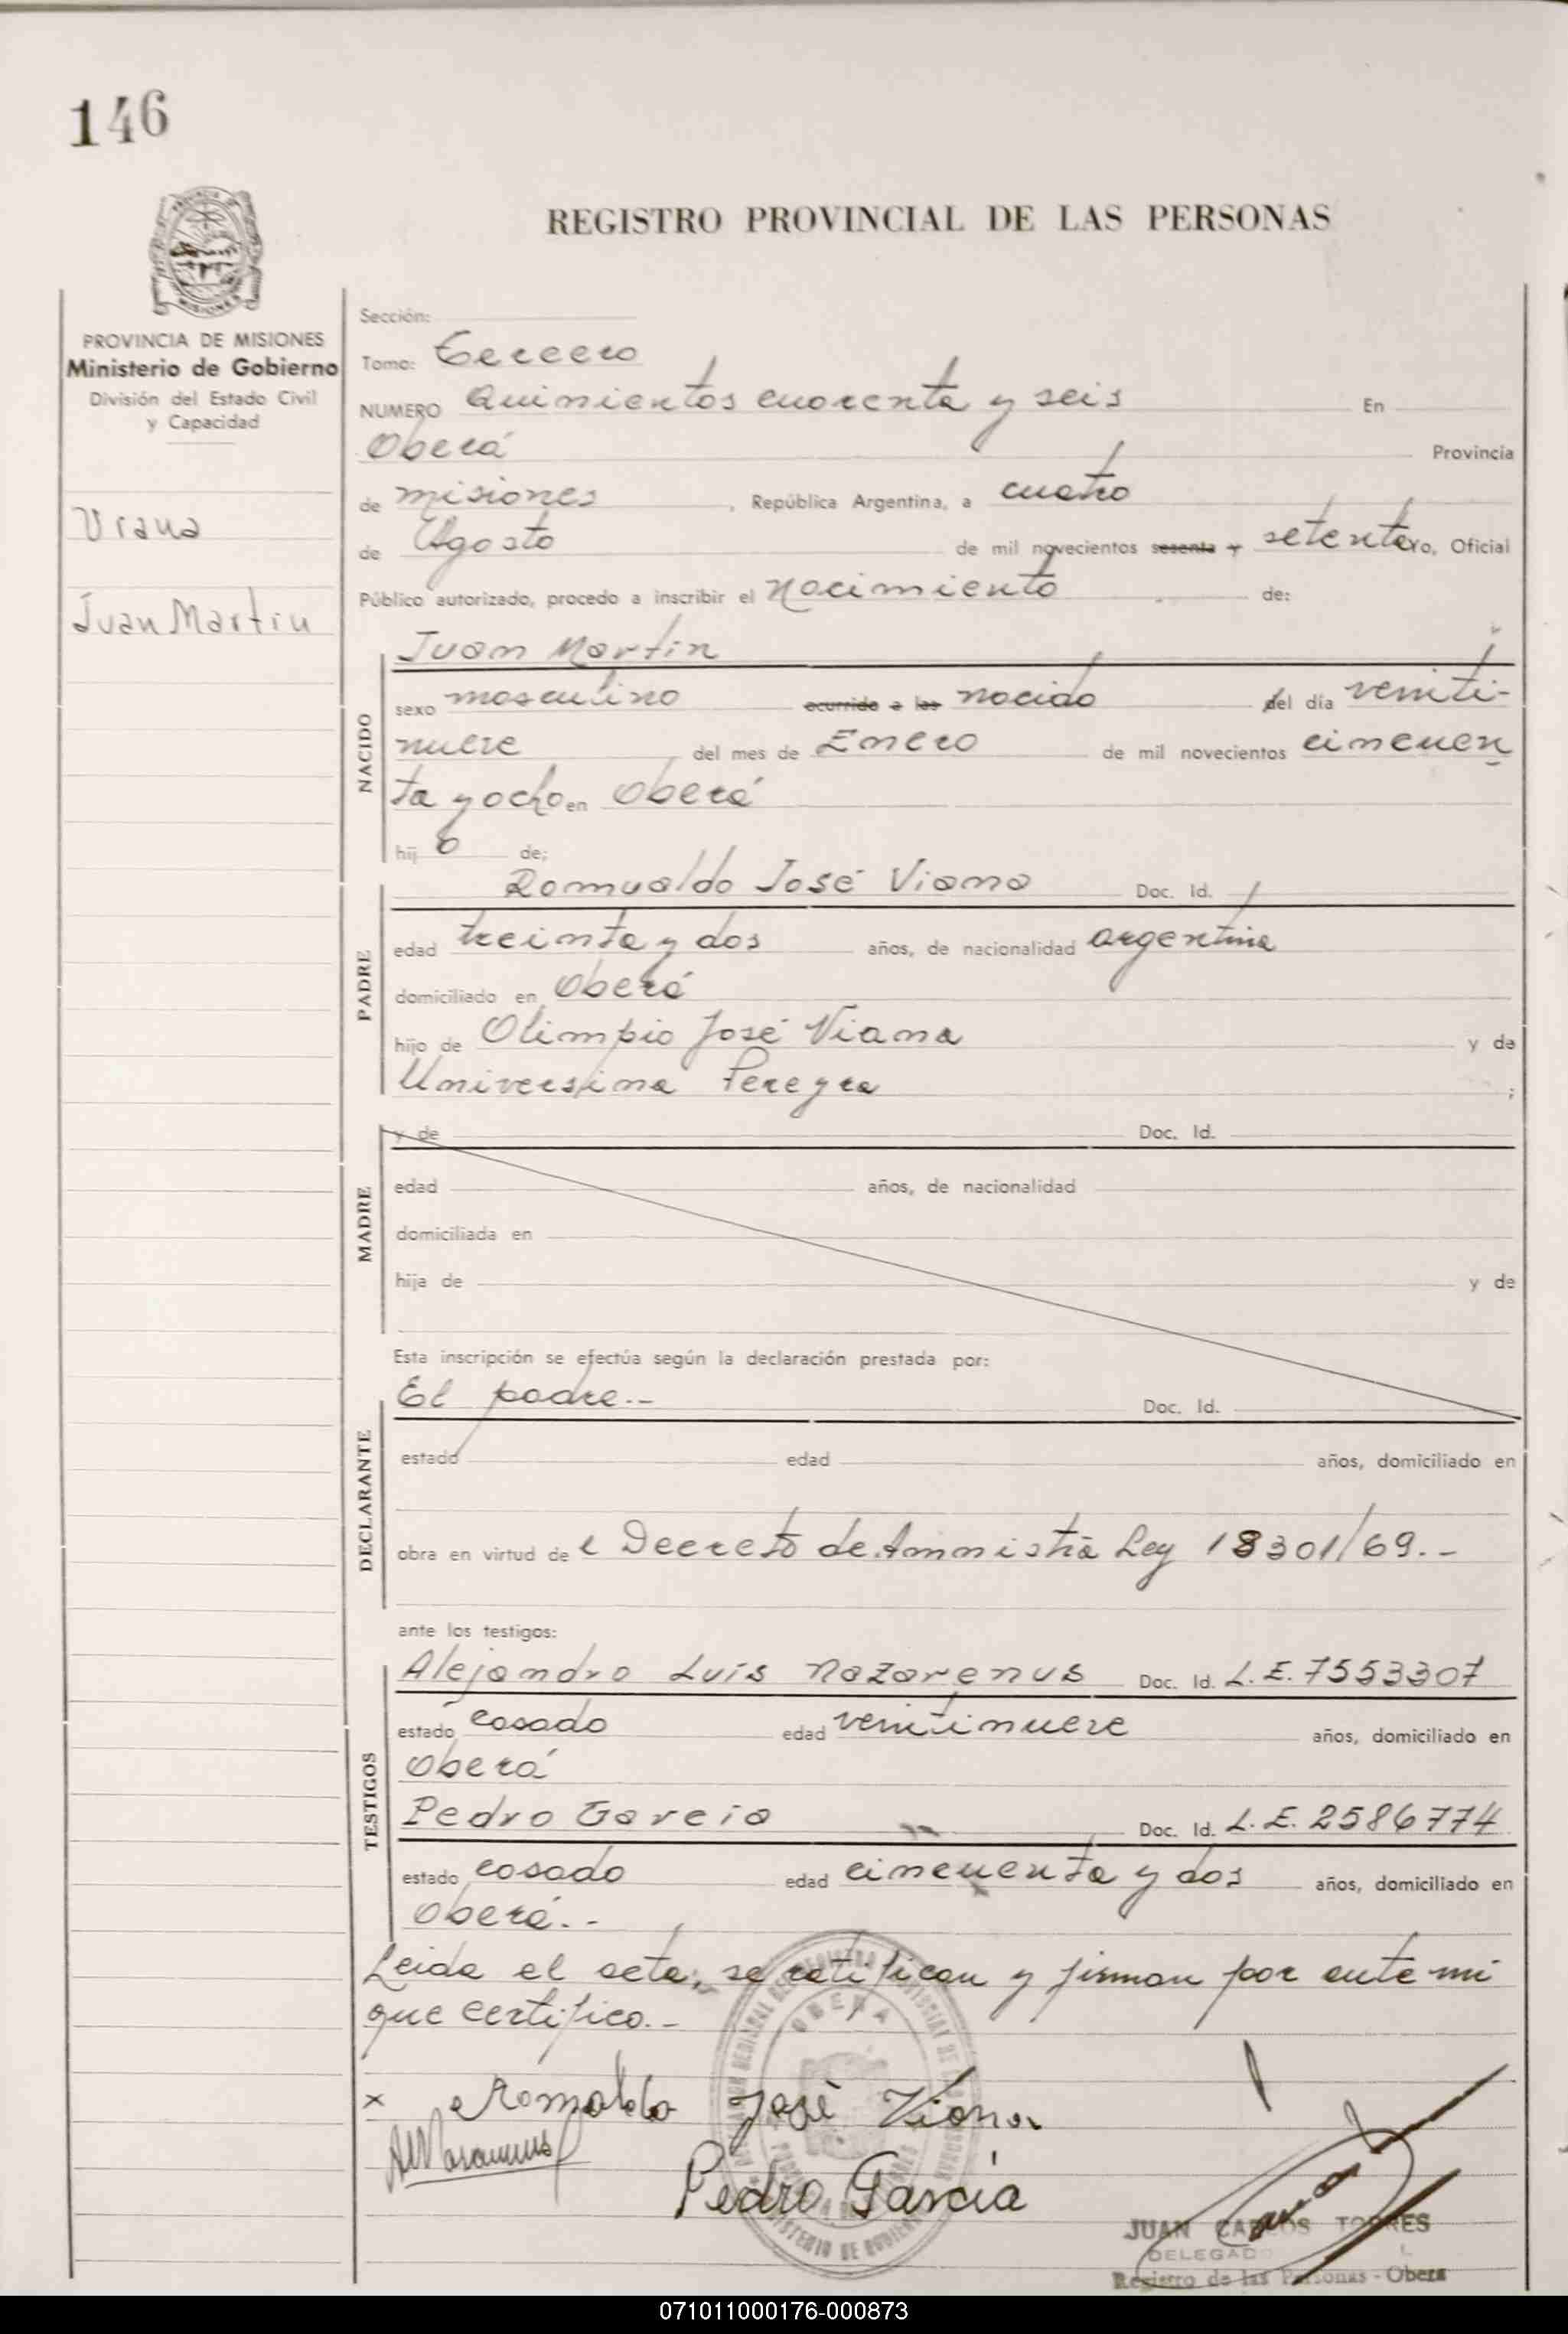 146
REGISTRO PROVINCIAL DE LAS PERSONAS
PROVINCIA DE MISIONES
Ministerio de Gobierno
División del Estado Civil
y Capacidad
Viana
Juan Martin
Sección:
Tomo: Tercero
NUMERO Quinientos cuarenta y seis En
Oberá Provincia
de misiones, República Argentina, a cuatro
de Agosto de mil novecientos sesenta y setenta yo, Oficial
Público autorizado, procedo a inscribir el nacimiento de:
NACIDO
Juan Martin
sexo masculino ocurrido a las nacido del día veniti-
nueve del mes de Enero de mil novecientos cincuen
ta y ocho en Oberá
hijo de;
PADRE
Romualdo José Viana Doc. Id.
edad treinta y dos años, de nacionalidad argentina
domiciliado en Oberá
hijo de Olimpio José Viana y de
Universina Pereyra ;
MADRE
y de Doc. Id.
edad años, de nacionalidad
domiciliada en
hija de y de
Esta inscripción se efectúa según la declaración prestada por:
DECLARANTE
El padre.- Doc. Id.
estado edad años, domiciliado en
obra en virtud del Decreto de Amnistia Ley 18301/69.-
ante los testigos:
TESTIGOS
Alejandro Luis Nazarenus Doc. Id. L.E. 7553307
estado casado edad venitinueve años, domiciliado en
Oberá
Pedro Garcia Doc. Id. L.E. 2586774
estado casado edad cincuenta y dos años, domiciliado en
Oberá.-
Leida el acta, se ratifican y firman por ante mi
que certifico.-
x Romoldo José Viana
Pedro Garcia
OBERA
JUAN CARLOS TORRES
DELEGADO
Registro de las Personas - Obera
071011000176-000873